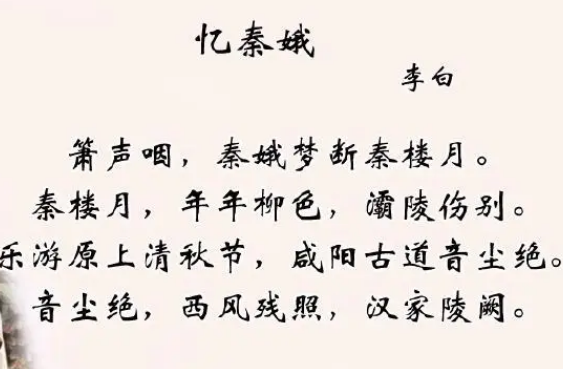 忆秦娥
李白
箫声咽，秦娥梦断秦楼月。
秦楼月，年年柳色，灞陵伤别。
乐游原上清秋节，咸阳古道音尘绝。
音尘绝，西风残照，汉家陵阙。